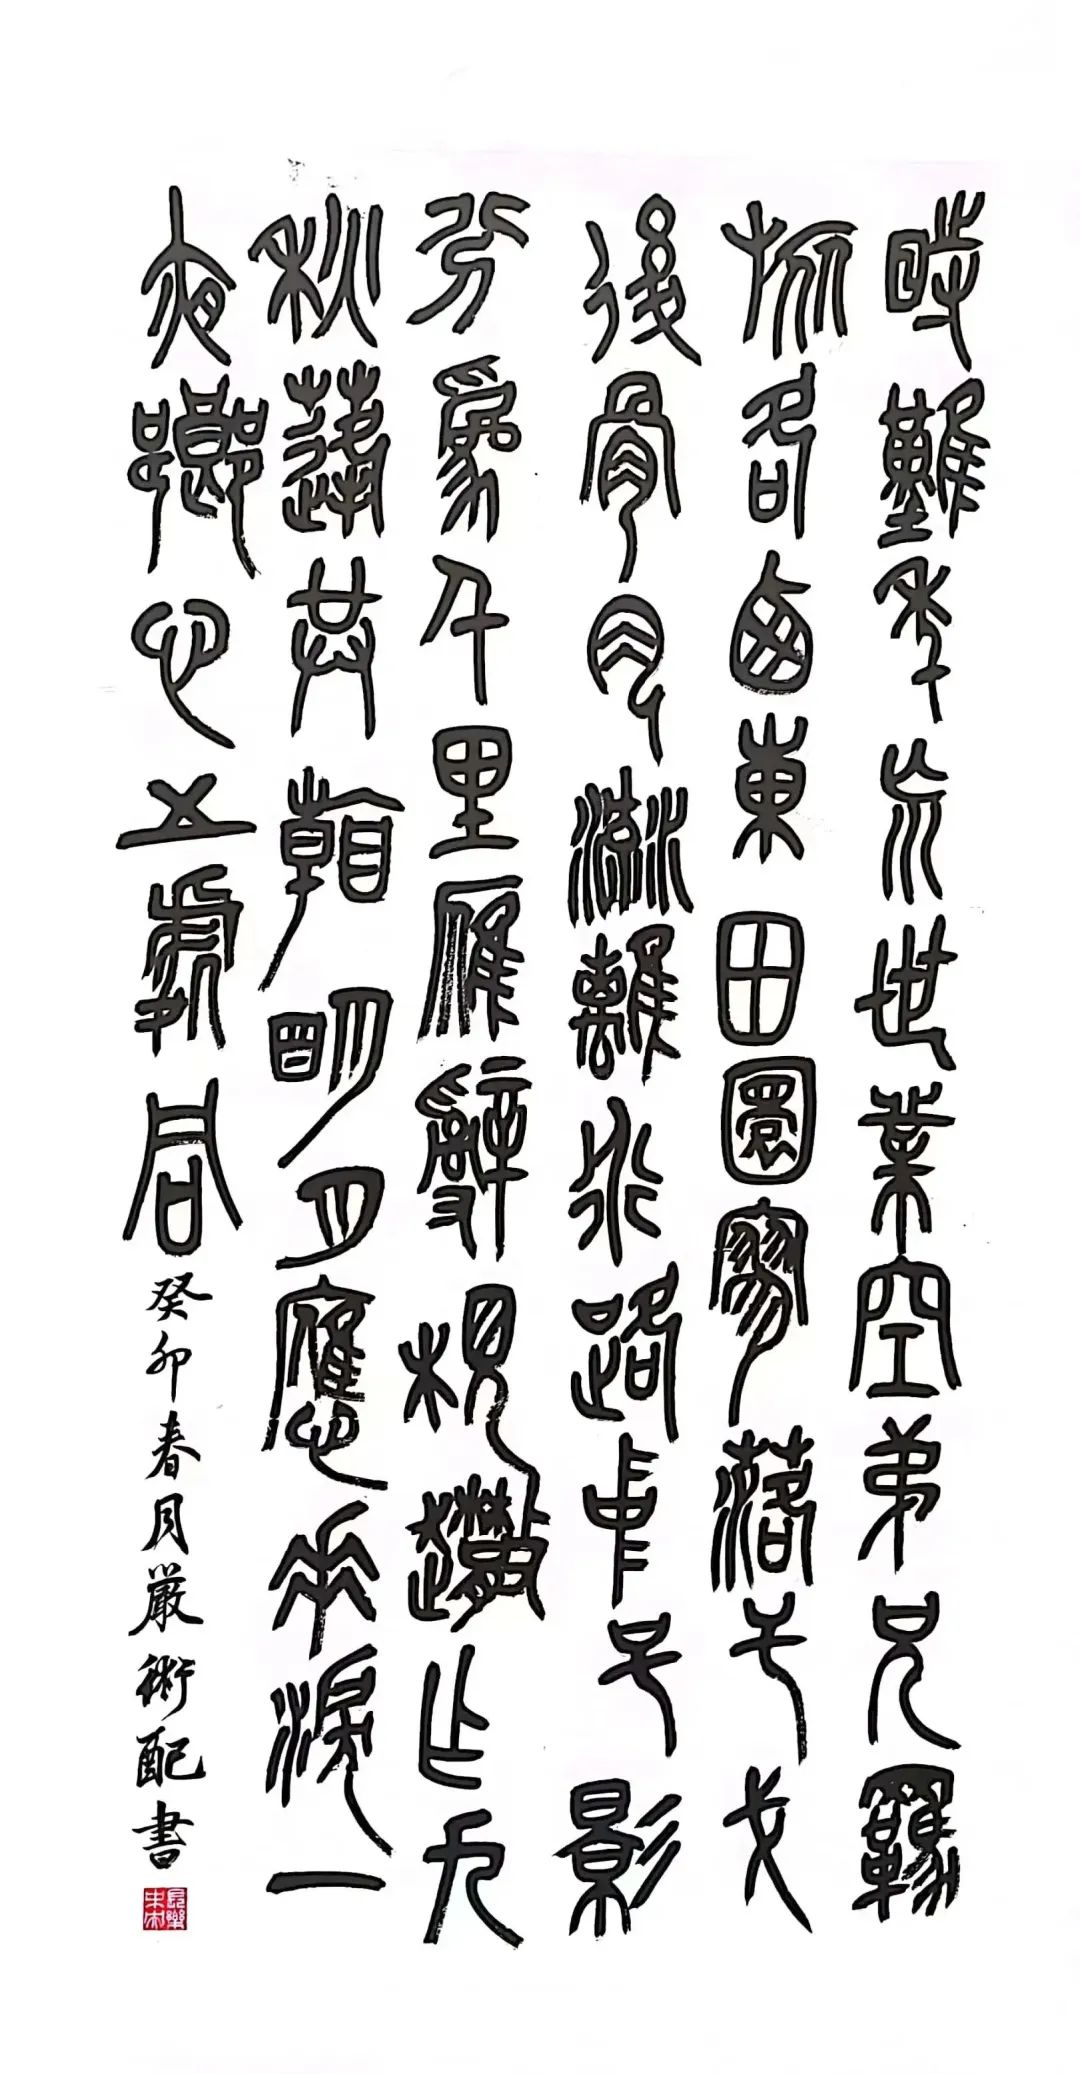 時難年荒世業空弟兄羈
旅各西東田園寥落干戈
後骨肉流離道路中弔影
分為千里雁辭根散作九
秋蓬共看明月應垂淚一
夜鄉心五處同
癸卯春月嚴術配書